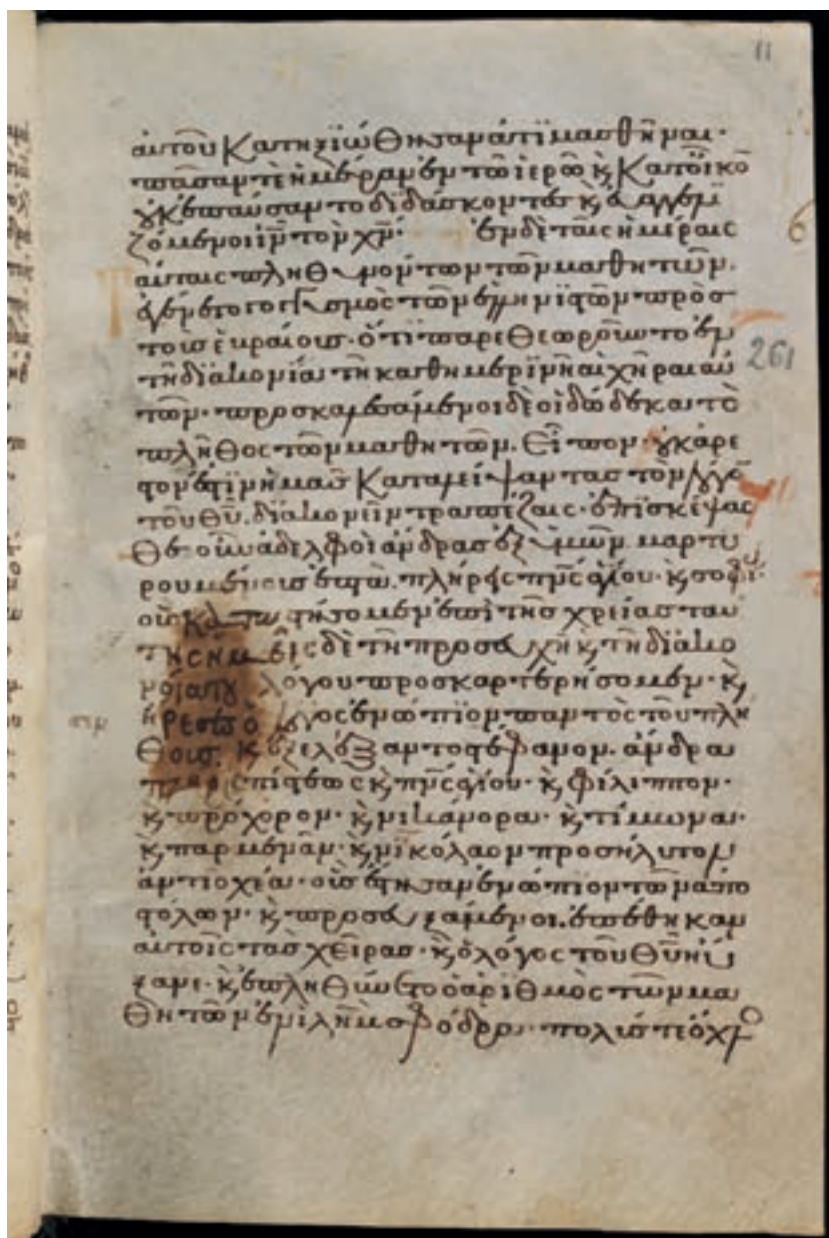 11
αὐτοῦ κατηξιώθησαν ἀτιμασθῆναι·
πᾶσάν τε ἡμέραν ἐν τῶ ἱερῶ κ̀ κατοἶκο̅
οὐκ ἐπαύσαντο διδάσκοντες κ̀ εὐαγγελι
ζόμενοι ι̅ν̅ τὸν χ̅ν̅· ἐν δὲ ταῖς ἡμέραις
αὐταις πληθυνόντων τῶν μαθητῶν.
ἐγένετο γογγυσμὸς τῶν ἑλληνιστῶν πρὸς
τοὺς ἑβραίους· ὅτι παρεθεωροῦντο ἐν
261
τῆ διακονία τῆ καθημερινῆ αἱ χῆραι αὐ
τῶν· προσκαλεσάμενοι δὲ οἱ δώδεκα τὸ
πλῆθος τῶν μαθητῶν. εἶπον· οὐκ ἀρε
στόν ἐστιν ἡμᾶς καταλείψαντας τὸν λόγο̅
τοῦ θ̅υ̅. διακονεῖν τραπέζαις· ἐπισκέψας
θε οὖν ἀδελφοὶ ἄνδρας ἐξ ὑμῶν μαρτυ
ρουμένους ἑπτὰ. πλήρεις π̅ν̅ς̅ ἁγίου· κ̀ σοφί
οὓς καταστήσομεν ἐπὶ τῆς χρείας ταύ
της ἡμεῖς δὲ τῆ προσευχῆ κ̀ τῆ διακο
νία τοῦ λόγου προσκαρτερήσομεν· κ̀
ἤρεσεν ὁ λόγος ἐνώπιον παντὸς τοῦ πλή
θους. κ̀ ἐξελέξαντο στέφανον. ἄνδρα
πλήρης πίστεως κ̀ π̅ν̅ς̅ ἁγίου· κ̀ φίλιππον·
κ̀ πρόχορον· κ̀ νικάνορα· κ̀ τίμωνα·
κ̀ παρμενᾶν· κ̀ νικόλαον προσήλυτον
ἀντιοχέα· οὓς ἔστησαν ἐνώπιον τῶν ἀπο
στόλων· κ̀ προσευξάμενοι. ἐπέθηκαν
αὐτοῖς τὰς χεῖρας· κ̀ ὁ λόγος τοῦ θ̅υ̅ ηὔ
ξανε· κ̀ ἐπληθύνετο ὁ ἀριθμὸς τῶν μα
θητῶν ἐν ἱ̅λ̅η̅μ̅ σφόδρα· πολύς τε ὄχλο